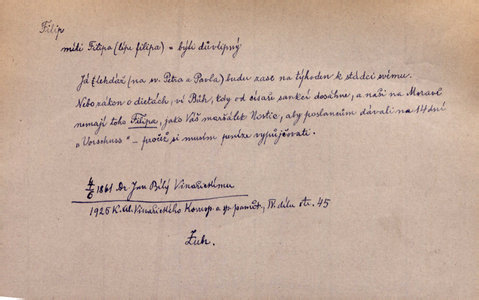 Filip
míti Filipa (lépe filipa) = býti důvtipný
Já (lehdář (na sv. Petra a Pavla) budu zase na týhoden k stádci svému.
Nebo zákon o dietách, ví Bůh, kdy od císaře sankcí dosáhne, a naši na Moravě
nemají toho Filipa, jako Váš maršálek Nostic, aby poslancům dávali na 14 dní
„Vorschuss“ – pročež si musím peníze vypůjčovati.
4/6 1861 Dr Jan Bílý Vinařickému
1925 K. Al. Vinařického Korresp. a sp. pamětn., IV. dílu str. 45
Zub.